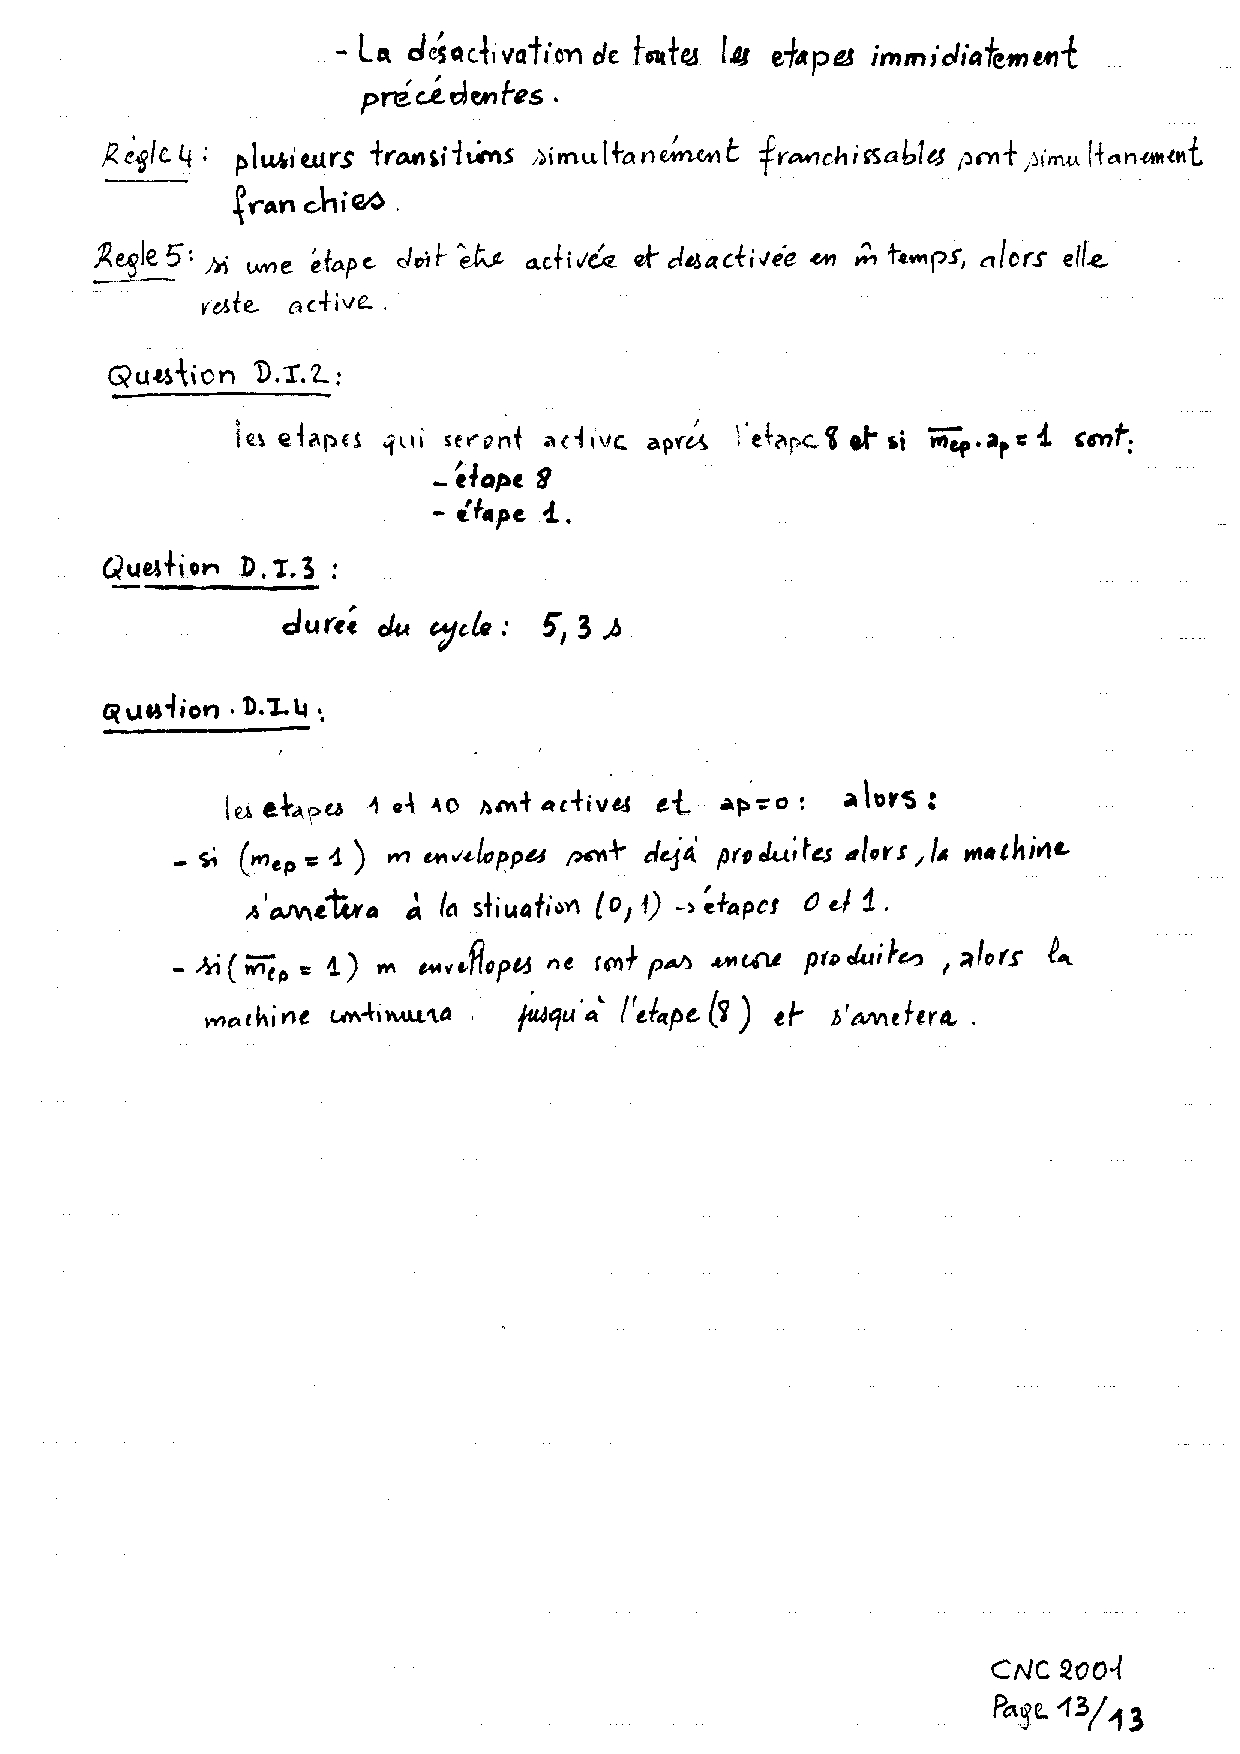 - La désactivation de toutes les etapes immidiatement
précédentes.
Règle 4 : plusieurs transitions simultanément franchissables sont simultanement
franchies.
Regle 5 : si une étape doit être activée et desactivée en m̂ temps, alors elle
reste active.
Question D.I.2 :
les etapes qui seront active après l'etape 8 et si m̅ep.ap = 1 sont :
- étape 8
- étape 1.
Question D.I.3 :
dureé du cycle : 5,3 s
Question . D.I.4 :
les etapes 1 et 10 sont actives et ap=0 : alors :
- si (mep = 1) m enveloppes sont dejà produites alors, la machine
s'arretera à la stiuation (0,1) -> étapes 0 et 1.
- si (m̅ep = 1) m enveflopes ne sont pas encore produites, alors la
machine continuera . jusqu'à l'etape (8) et s'arretera .
CNC 2001
Page 13/13